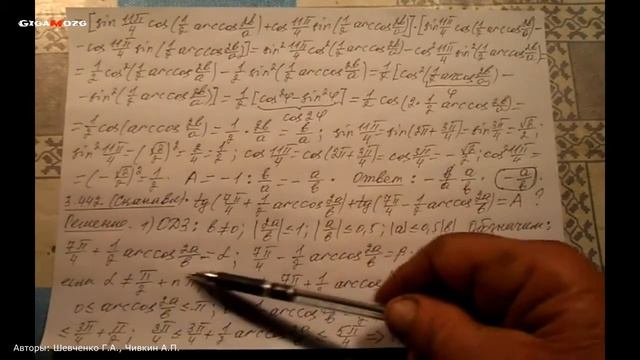 GIGAMOZG
[sin 11π/4 cos(1/2 arccos 2b/a) + cos 11π/4 sin(1/2 arccos 2b/a)]·[sin 11π/4 cos(1/2 arccos 2b/a) -
- cos 11π/4 sin(1/2 arccos 2b/a)] = sin² 11π/4 cos²(1/2 arccos 2b/a) - cos² 11π/4 sin²(1/2 arccos 2b/a) =
= 1/2 cos²(1/2 arccos 2b/a) - 1/2 sin²(1/2 arccos 2b/a) = 1/2 [cos²(1/2 arccos 2b/a) -
- sin²(1/2 arccos 2b/a)] = 1/2 [cos²φ - sin²φ] = 1/2 cos(2·1/2 arccos 2b/a) =
cos2φ
= 1/2 cos(arccos 2b/a) = 1/2 · 2b/a = b/a; sin 11π/4 = sin(2π + 3π/4) = sin 3π/4 = √2/2;
sin² 11π/4 = (√2/2)² = 2/4 = 1/2; cos 11π/4 = cos(2π + 3π/4) = cos 3π/4 = -√2/2; cos² 11π/4 =
= (-√2/2)² = 1/2 A = -1 : b/a = -a/b. Ответ: -a/b.
3.442. (Сканави). tg(7π/4 + 1/2 arccos 2a/b) + tg(7π/4 - 1/2 arccos 2a/b) = A ?
Решение. 1) ОДЗ: b≠0; |2a/b| ≤ 1; |a/b| ≤ 0,5; |a| ≤ 0,5|b| Обозначим:
7π/4 + 1/2 arccos 2a/b = α; 7π/4 - 1/2 arccos 2a/b = β.
если α ≠ π/2 + π 7π/4 + 1/2 arccos
0 ≤ arccos 2a/b ≤ π;
≤ 3π/4 + π/2; 3π/4 ≤ 3π/4 + 1/2 arccos 5π/4 ⇒
Авторы: Шевченко Г.А., Чивкин А.П.